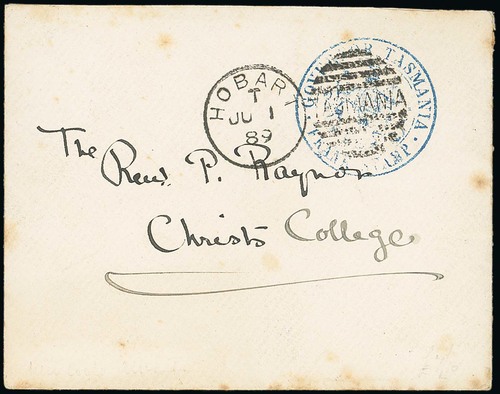 HOBART
T
JU 1
89
GOVERNOR TASMANIA
TASMANIA
The
Revd. P. Raynor
Christs College